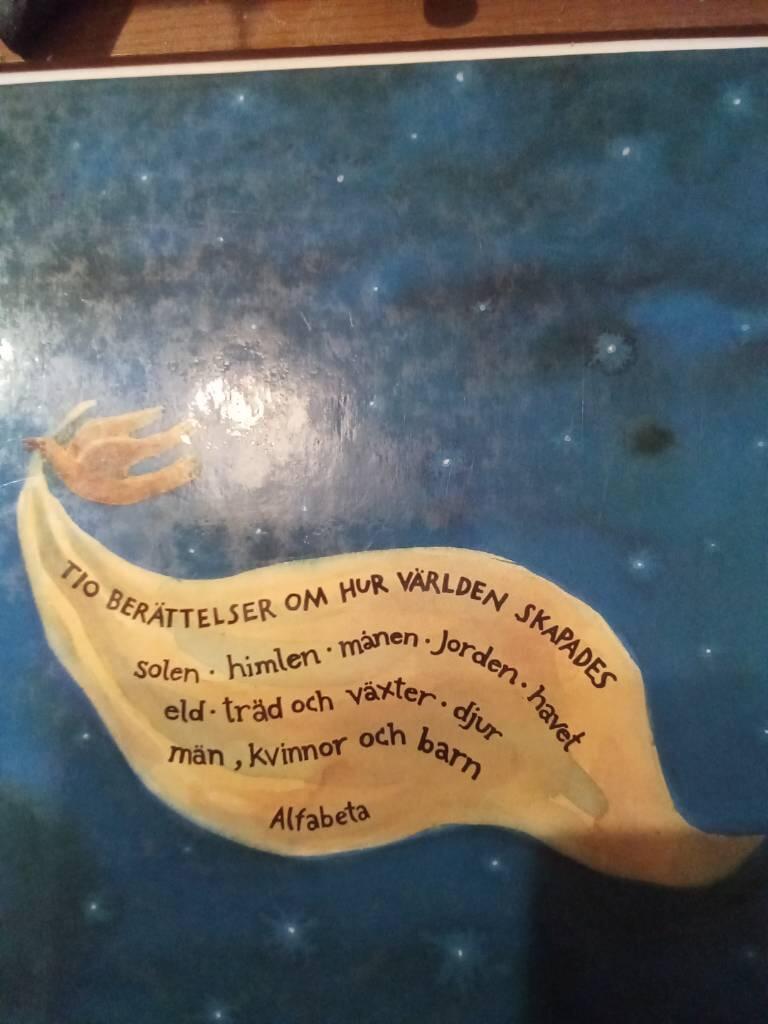 TIO BERÄTTELSER OM HUR VÄRLDEN SKAPADES
solen · himlen · månen · Jorden · havet
eld · träd och växter · djur
män, kvinnor och barn
Alfabeta